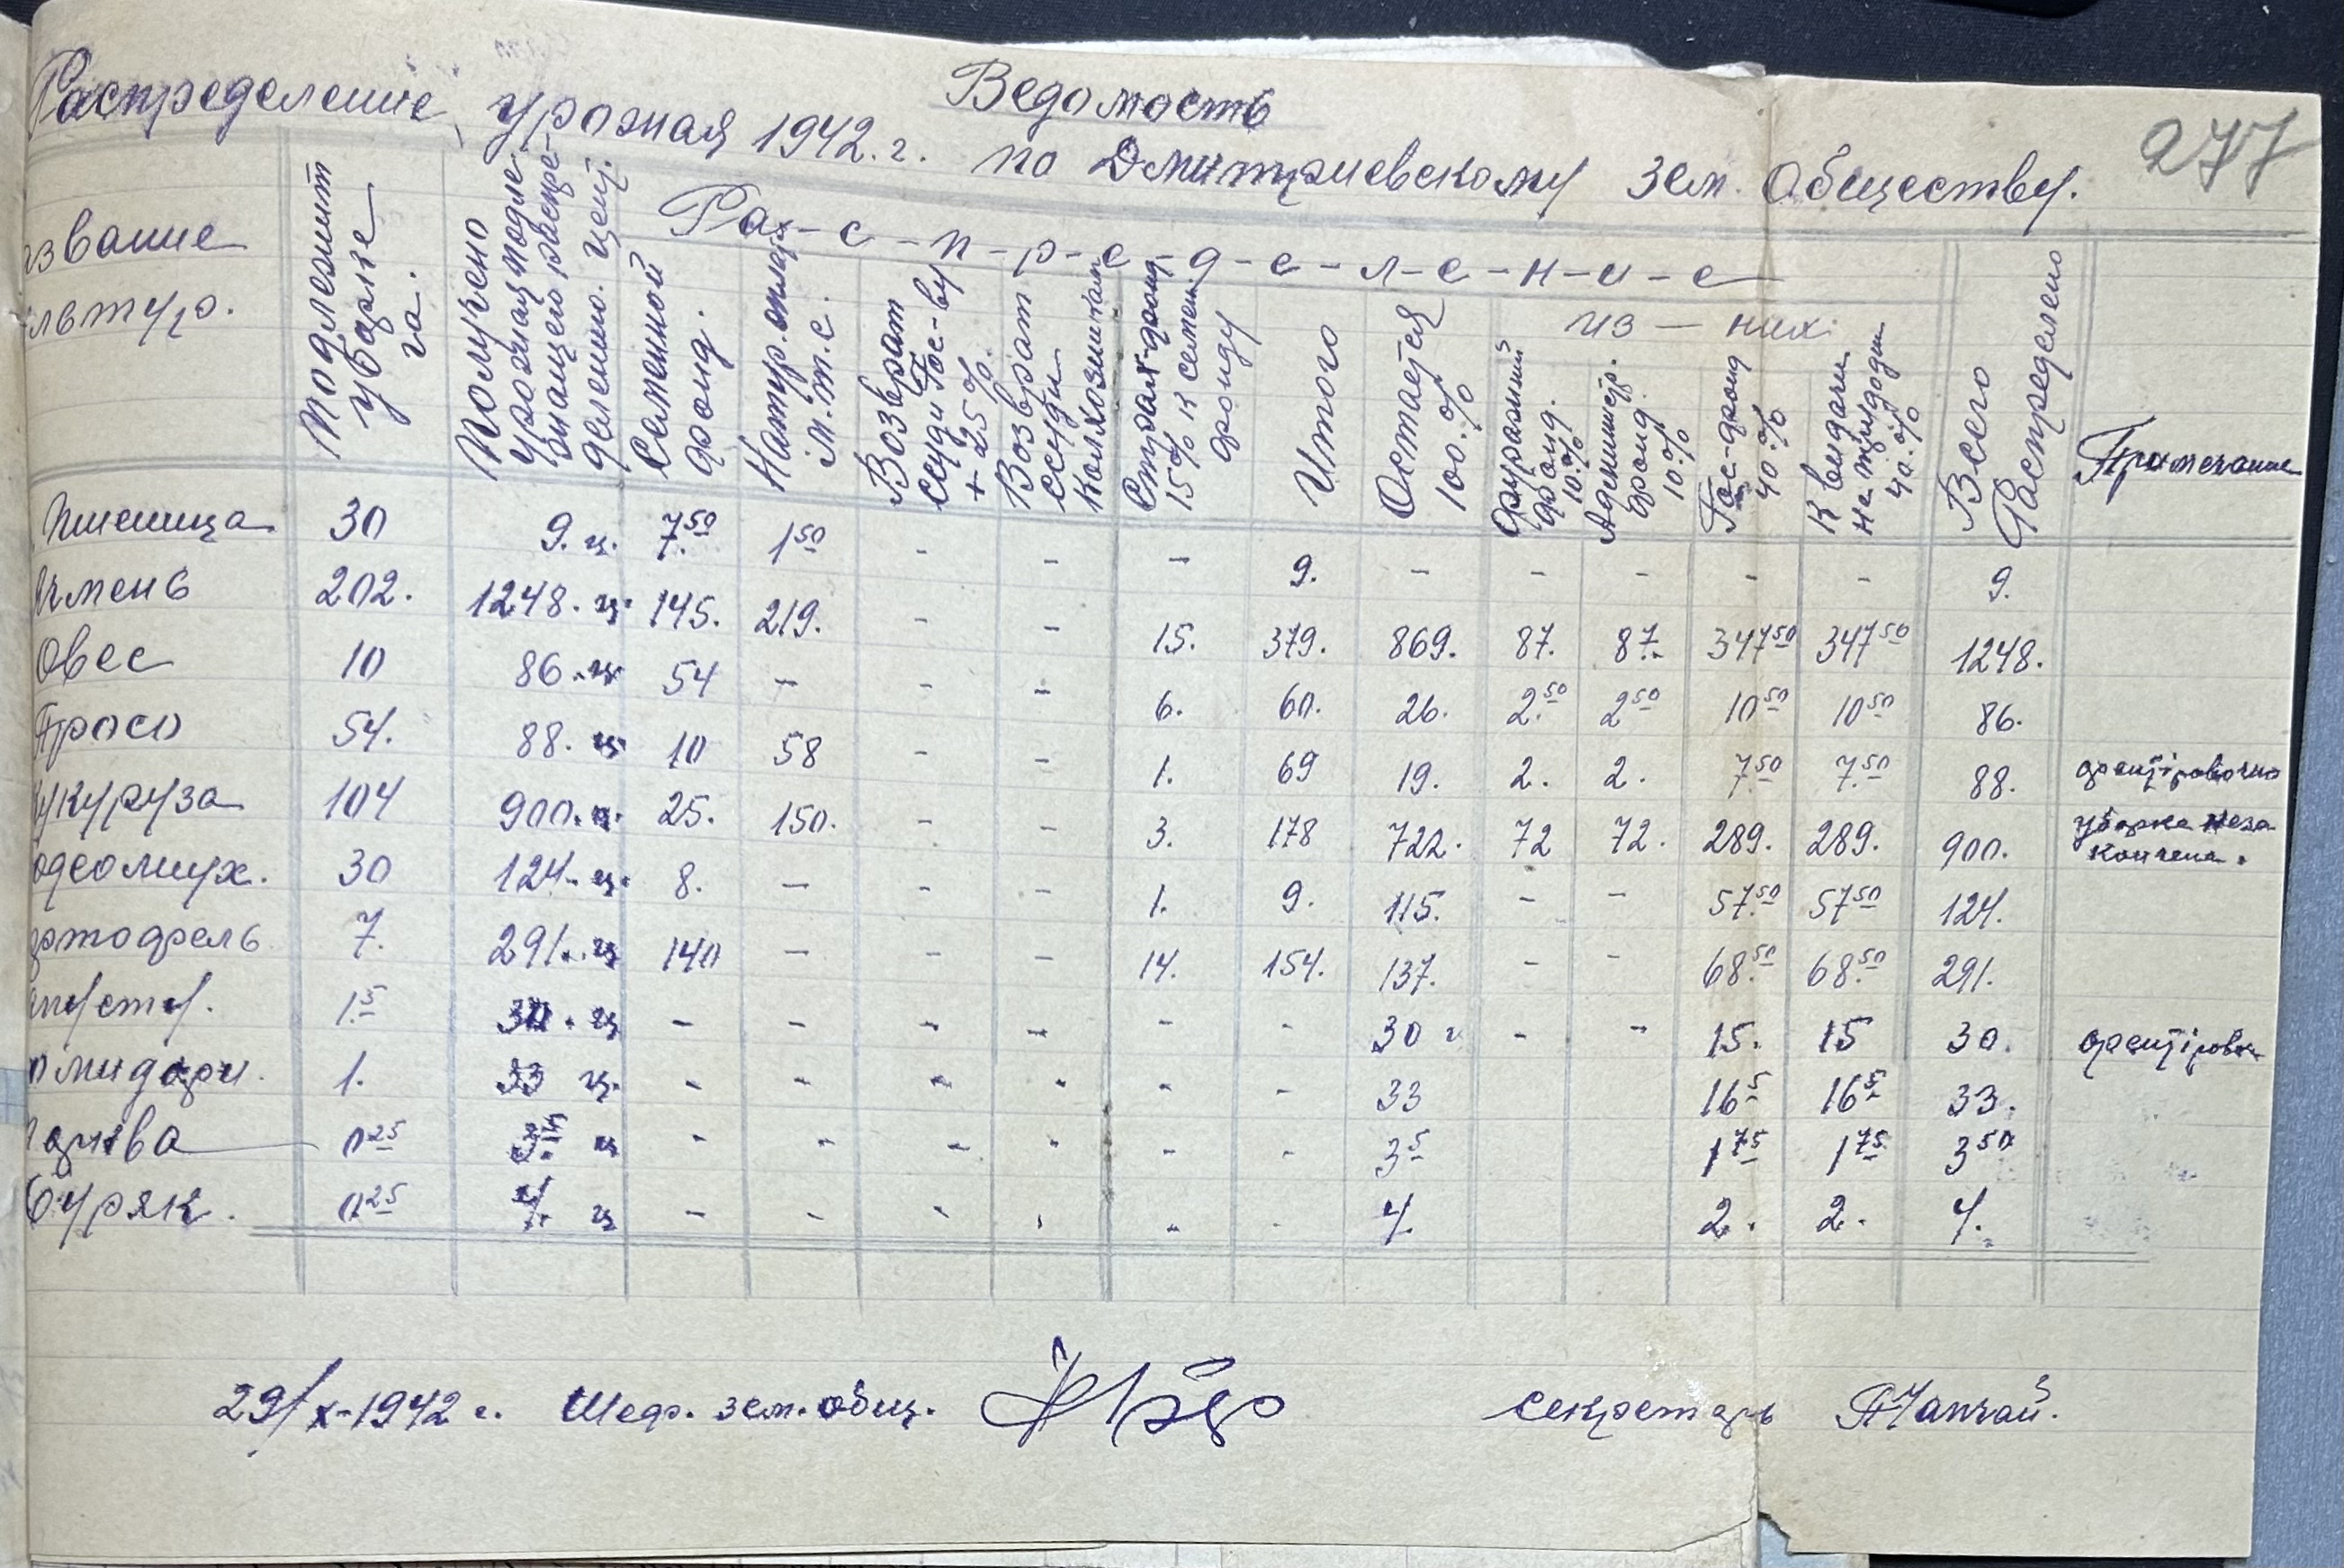 Ведомость
277
Распределение урожая 1942. г. по Дмитриевскому Зем. Обществу.
азвание
льтур.
Подлежит уборке га.
Получено урожая подле- жащего распре- делению. цент.
Рас-с-п-р-е-д-е-л-е-н-и-е
Семенной фонд.
Натур. оплата м.т.с.
Возврат ссуди Гос-ву + 25%.
Возврат ссуди колхозничкам
Страх-фонд 15% к семен фонду
Итого
Остается 100.%
из — них
Фуражний фонд. 10%
Администр. фонд. 10%
Гос-фонд 40.%
К видачи на трудодни 40.%
Всего Распределено
Примечание
Пшеница 30 9. ц. 7.50 1 50 - - - 9. - - - - - 9.
Ячмень 202. 1248. ц. 145. 219. - - 15. 379. 869. 87. 87. 347 50 347 50 1248.
Овес 10 86. ц 54 - - - 6. 60. 26. 2.50 2 50 10 50 10 50 86.
Просо 54. 88. ц. 10 58 - - 1. 69 19. 2. 2. 7.50 7.50 88. ориентировочно
укуруза 104 900. ц. 25. 150. - - 3. 178 722. 72 72. 289. 289. 900. уборка неза кончена.
одсолнух. 30 124. ц. 8. - - - 1. 9. 115. - - 57.50 57 50 124.
ртофель 7. 291. ц 140 - - - 14. 154. 137. - - 68.50 68.50 291.
апусти. 1.5 30. ц - - - - - - 30 - - 15. 15 30. ориентировоч
омидори. 1. 33 ц. - - - - - - 33 16 5 16 5 33.
0 25 3.5 ц - - - - - - 3 5 1 75 1 75 3 50
Буряк. 0 25 4. ц - - - - - - 4. 2. 2. 4.
29/X-1942 г. Шеф. зем. общ. секретарь